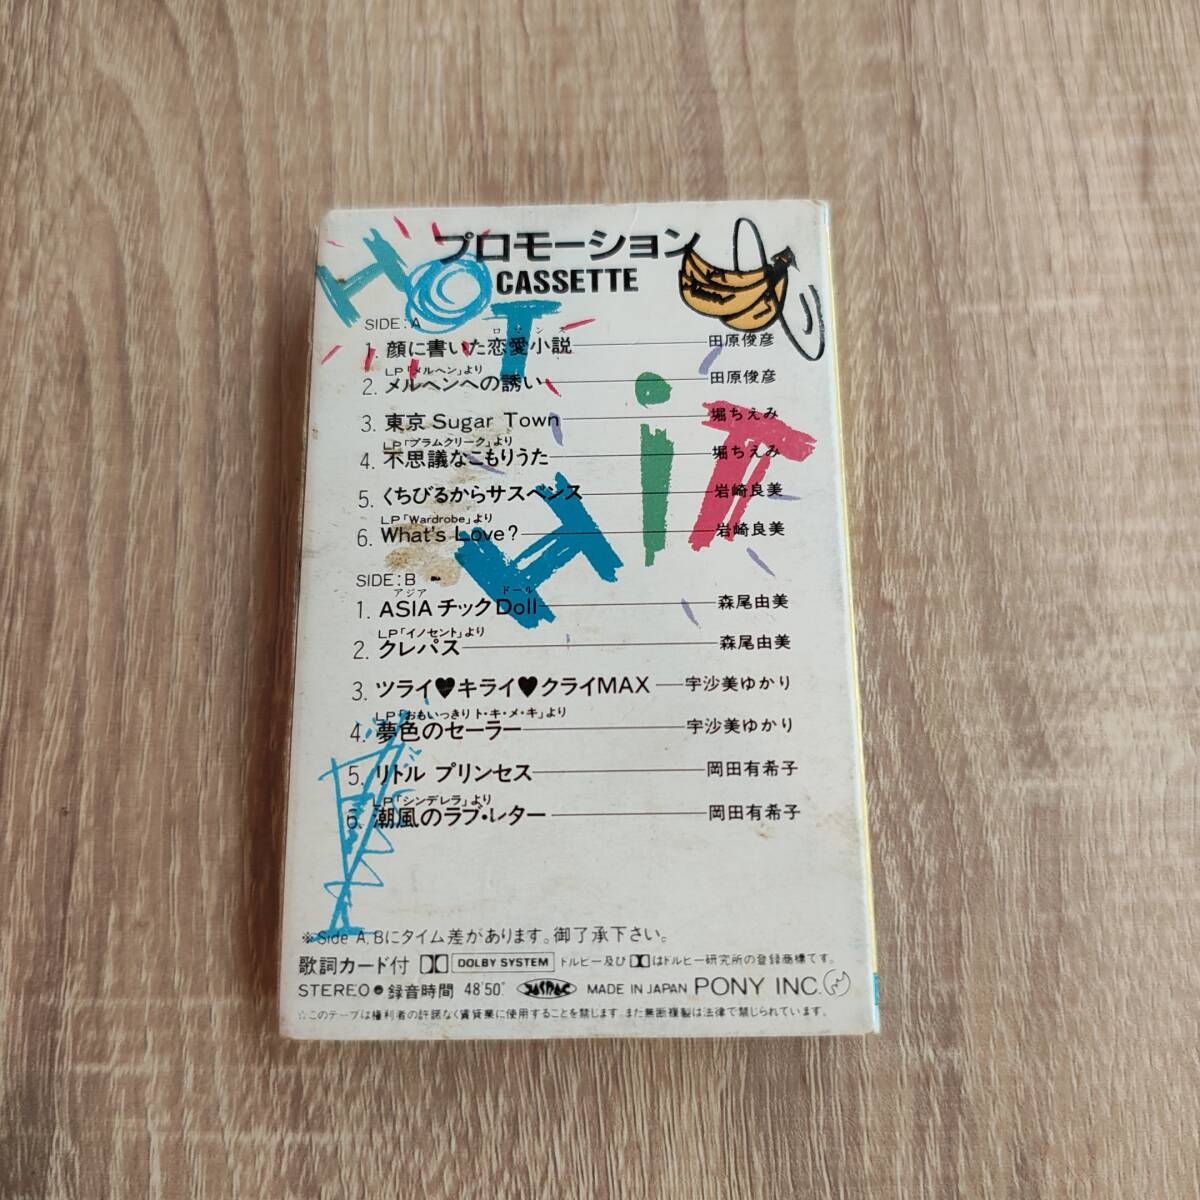 プロモーション
CASSETTE
HOT HiT
SIDE:A
ロマンス
1. 顔に書いた恋愛小説 田原俊彦
LP「メルヘン」より
2. メルヘンへの誘い 田原俊彦
3. 東京 Sugar Town 堀ちえみ
LP「プラムクリーク」より
4. 不思議なこもりうた 堀ちえみ
5. くちびるからサスペンス 岩崎良美
LP「Wardrobe」より
6. What's Love? 岩崎良美
SIDE:B
アジア ドール
1. ASIAチックDoll 森尾由美
LP「イノセント」より
2. クレパス 森尾由美
3. ツライ♥キライ♥クライMAX 宇沙美ゆかり
LP「おもいっきり ト・キ・メ・キ」より
4. 夢色のセーラー 宇沙美ゆかり
5. リトル プリンセス 岡田有希子
LP「シンデレラ」より
6. 潮風のラブ・レター 岡田有希子
※Side A,Bにタイム差があります。御了承下さい。
歌詞カード付 DOLBY SYSTEM ドルビー及びはドルビー研究所の登録商標です。
STEREO 録音時間 48'50" JASRAC MADE IN JAPAN PONY INC.
☆このテープは権利者の許諾なく賃貸業に使用することを禁じます。また無断複製は法律で禁じられています。